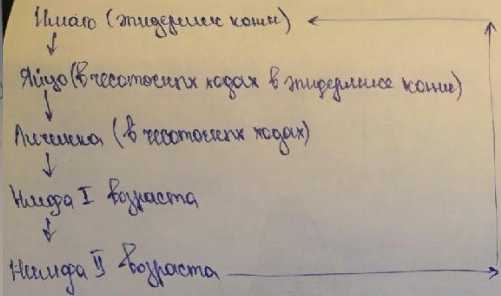 Имаго (эпидермис кожи)
Яйцо (в чесоточных ходах в эпидермисе кожи)
Личинка (в чесоточных ходах)
Нимфа I возраста
Нимфа II возраста